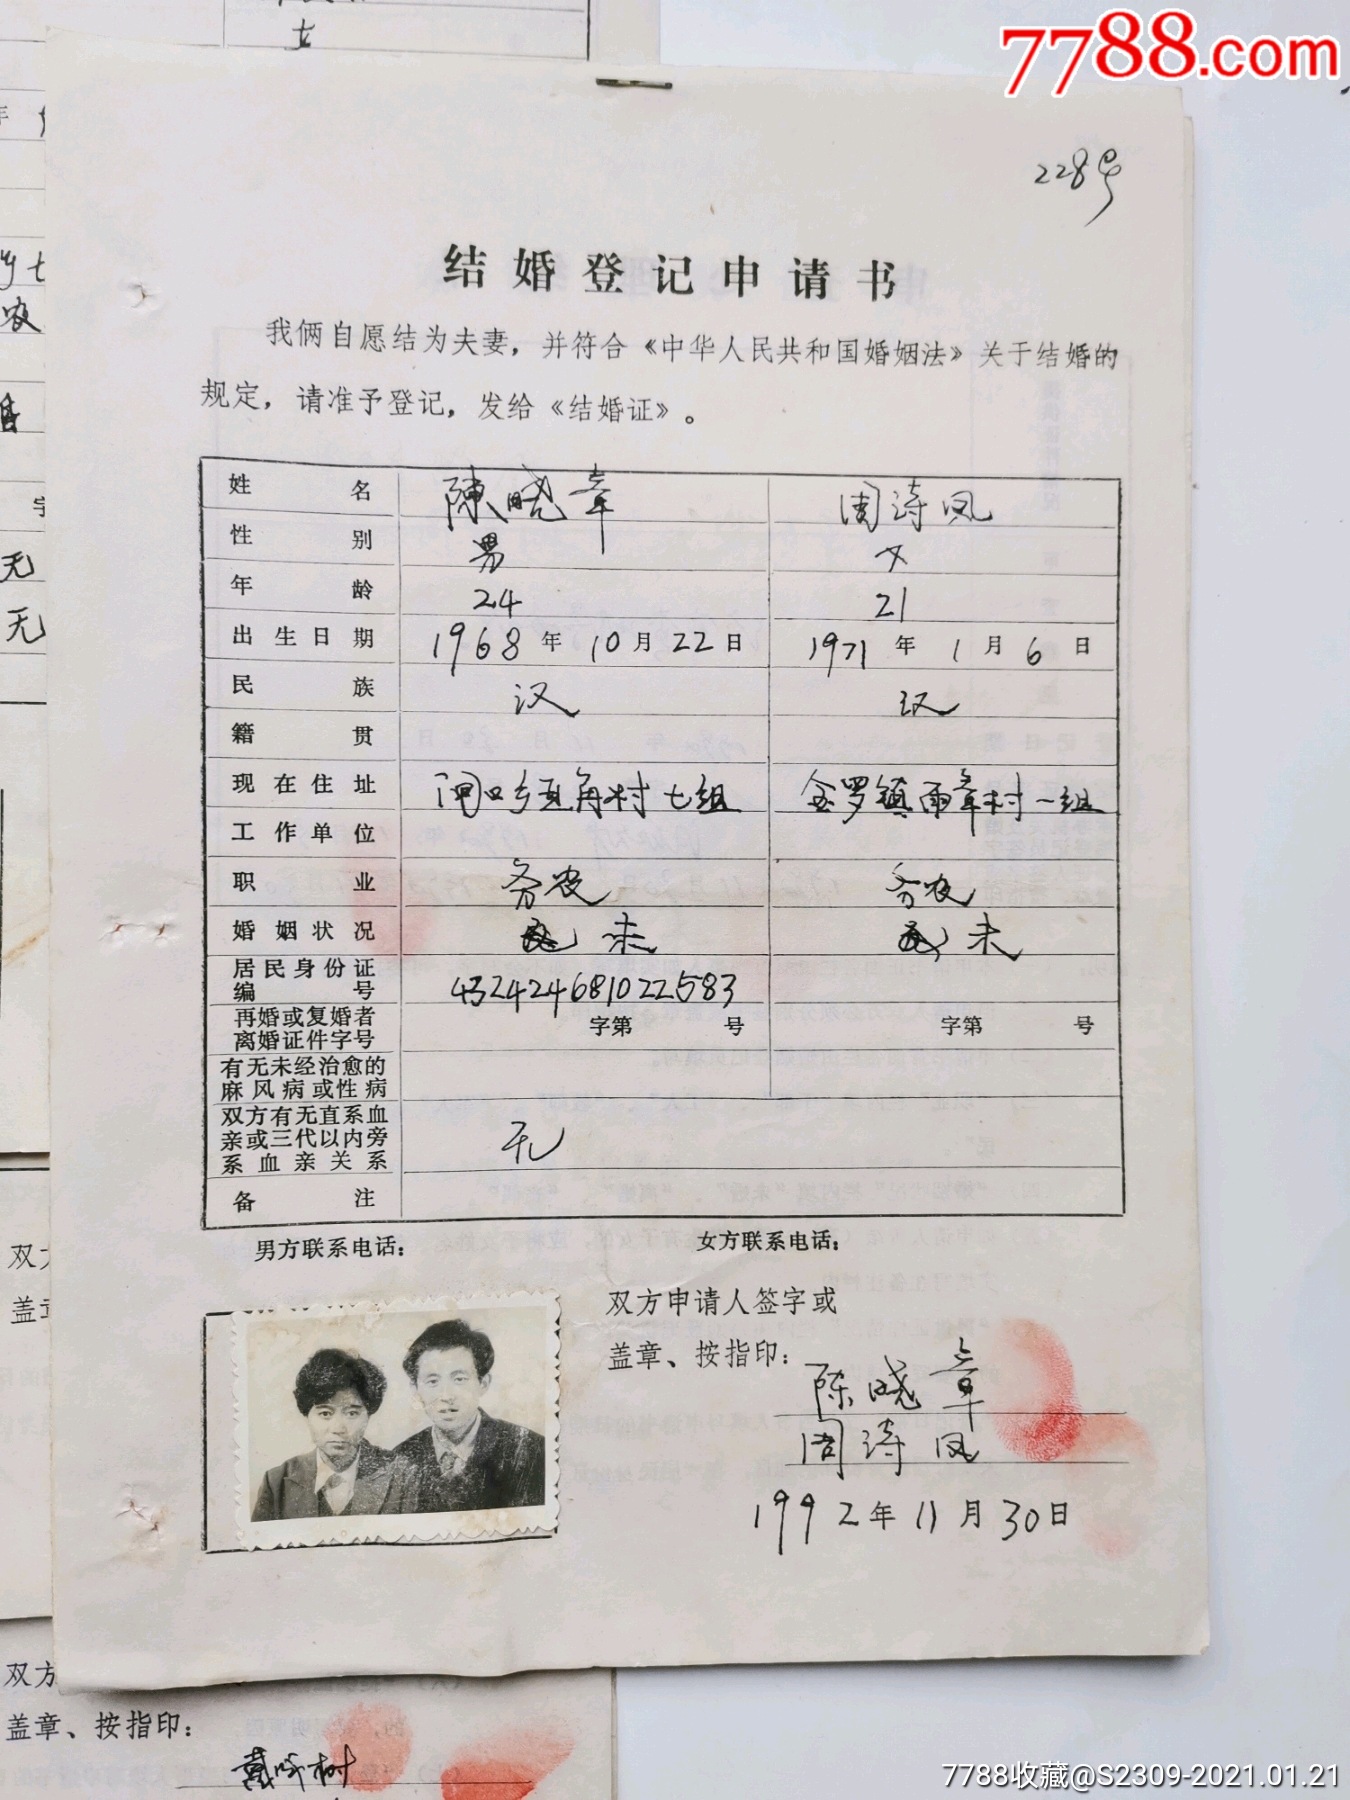 7788.com
228号
结婚登记申请书
我俩自愿结为夫妻，并符合《中华人民共和国婚姻法》关于结婚的
规定，请准予登记，发给《结婚证》。
姓名 陳晓章 周涛凤
性别 男 女
年龄 24 21
出生日期 1968年10月22日 1971年1月6日
民族 汉 汉
籍贯
现在住址 村七组 金罗镇雨章村一组
工作单位
职业 务农 务农
婚姻状况 未 未
居民身份证
编号 432424681022583
再婚或复婚者
离婚证件字号 字第 号 字第 号
有无未经治愈的
麻风病或性病
双方有无直系血
亲或三代以内旁
系血亲关系 无
备注
男方联系电话： 女方联系电话：
双方申请人签字或
盖章、按指印：
陈晓章
周涛凤
1992年11月30日
双方
盖章、按指印：
7788收藏@S2309-2021.01.21